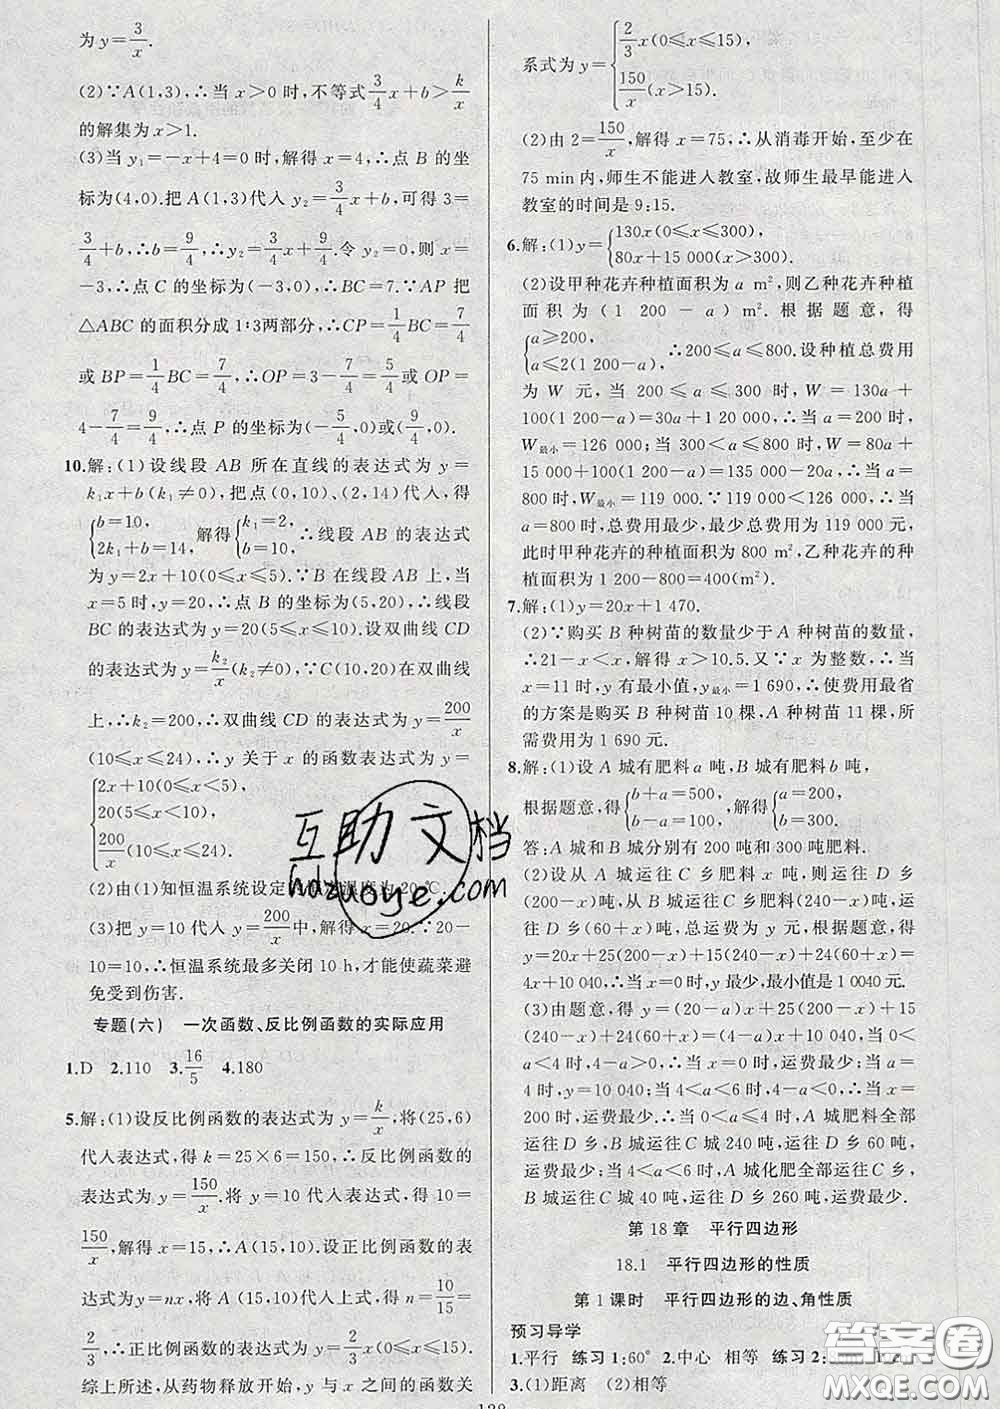 为 y=3/x.
(2)∵A(1,3),∴当 x>0 时,不等式 3/4 x+b>k/x
的解集为 x>1.
(3)当 y₁=-x+4=0 时,解得 x=4,∴点 B 的坐
标为(4,0).把 A(1,3)代入 y₂=3/4 x+b,可得 3=
3/4+b,∴b=9/4,∴y₂=3/4 x+9/4.令 y₂=0,则 x=
-3,∴点 C 的坐标为(-3,0),∴BC=7.∵AP 把
△ABC 的面积分成 1∶3两部分,∴CP=1/4 BC=7/4
或 BP=1/4 BC=7/4,∴OP=3-7/4=5/4 或 OP=
4-7/4=9/4,∴点 P 的坐标为(-5/4,0)或(9/4,0).
10.解:(1)设线段 AB 所在直线的表达式为 y=
k₁x+b(k₁≠0),把点(0,10)、(2,14)代入,得
{b=10, 2k₁+b=14, 解得{k₁=2, b=10, ∴线段 AB 的表达式
为 y=2x+10(0≤x≤5).∵B 在线段 AB 上,当
x=5 时,y=20,∴点 B 的坐标为(5,20),∴线段
BC 的表达式为 y=20(5≤x≤10).设双曲线 CD
的表达式为 y=k₂/x(k₂≠0),∵C(10,20)在双曲线
上,∴k₂=200,∴双曲线 CD 的表达式为 y=200/x
(10≤x≤24).∴y 关于 x 的函数表达式为 y=
{2x+10(0≤x<5),
20(5≤x<10),
200/x(10≤x≤24).
(2)由(1)知恒温系统设定 温度为 20 ℃.
(3)把 y=10 代入 y=200/x 中,解得 x=20.∵20-
10=10,∴恒温系统最多关闭 10 h,才能使蔬菜避
免受到伤害.
专题(六) 一次函数、反比例函数的实际应用
1.D 2.110 3.16/5 4.180
5.解:(1)设反比例函数的表达式为 y=k/x,将(25,6)
代入表达式,得 k=25×6=150,∴反比例函数的
表达式为 y=150/x.将 y=10 代入表达式,得 10=
150/x,解得 x=15,∴A(15,10).设正比例函数的表
达式为 y=nx,将 A (15,10)代入上式,得 n=10/15=
2/3,∴正比例函数的表达式为 y=2/3 x(0≤x≤15).
综上所述,从药物释放开始,y 与 x 之间的函数关
系式为 y={2/3 x(0≤x≤15), 150/x(x>15).
(2)由 2=150/x,解得 x=75,∴从消毒开始,至少在
75 min 内,师生不能进入教室,故师生最早能进入
教室的时间是 9:15.
6.解:(1)y={130x(0≤x≤300), 80x+15 000(x>300).
(2)设甲种花卉种植面积为 a m²,则乙种花卉种植
面积为(1 200-a)m².根据题意,得
{a≥200, a≤2(1 200-a) ∴200≤a≤800.设种植总费用
为 W 元,当 200≤a≤300 时,W=130a+
100(1 200-a)=30a+1 20 000,∴当 a=200 时,
W最小=126 000;当 300<a≤800 时,W=80a+
15 000+100(1 200-a)=135 000-20a,∴当 a=
800 时,W最小=119 000.∵119 000<126 000,∴当
a=800 时,总费用最少,最少为 119 000 元,
此时甲种花卉的种植面积为 800 m²,乙种花卉的种
植面积为 1 200-800=400(m²).
7.解:(1)y=20x+1 470.
(2)∵购买 B 种树苗的数量少于 A 种树苗的数量,
∴21-x<x,解得 x>10.5.又∵x 为整数,∴当
x=11 时,y 有最小值,y最小=1 690,∴使费用最省
的方案是购买 B 种树苗 10 棵,A 种树苗 11 棵,所
需费用为 1 690 元.
8.解:(1)设 A 城有肥料 a 吨,B 城有肥料 b 吨,
根据题意,得{b+a=500, b-a=100, 解得{a=200, b=300.
答:A 城和 B 城分别有 200 吨和 300 吨肥料.
(2)设从 A 城运往 C 乡肥料 x 吨,则运往 D 乡
(200-x)吨,从 B 城运往 C 乡肥料(240-x)吨,
则运往 D 乡(60+x)吨,总运费为 y 元,根据题意,得
y=20x+25(200-x)+15(240-x)+24(60+x)=
4x+10 040,∴当 x=0 时,y 最少,最小值是 1 0040 元.
(3)由题意,得 y=(20-a)x+25(200-x)+15
(240-x)+24(60+x)=(4-a)x+10 040,∴当 0
<a<4 时,4-a>0,∴当 x=0 时,运费最少;当 a=
4 时,y=10 040;当 4<a<6 时,4-a<0,∴当 x=
200 时,运费最少,∴当 0<a≤4 时,A 城肥料全部
运往 D 乡,B 城运往 C 城 240 吨,运往 D 乡 60 吨,
运费最少;当 4<a<6 时,A 城化肥全部运往 C 乡,
B 城运往 C 城 40 吨,运往 D 乡 260 吨,运费最少.
第 18 章 平行四边形
18.1 平行四边形的性质
第 1 课时 平行四边形的边、角性质
预习导学
1.平行 练习 1:60° 2.中心 相等 练习 2:
3.(1)距离 (2)相等
互助文档
hdzuoye.com
答案圈
MXQE.COM